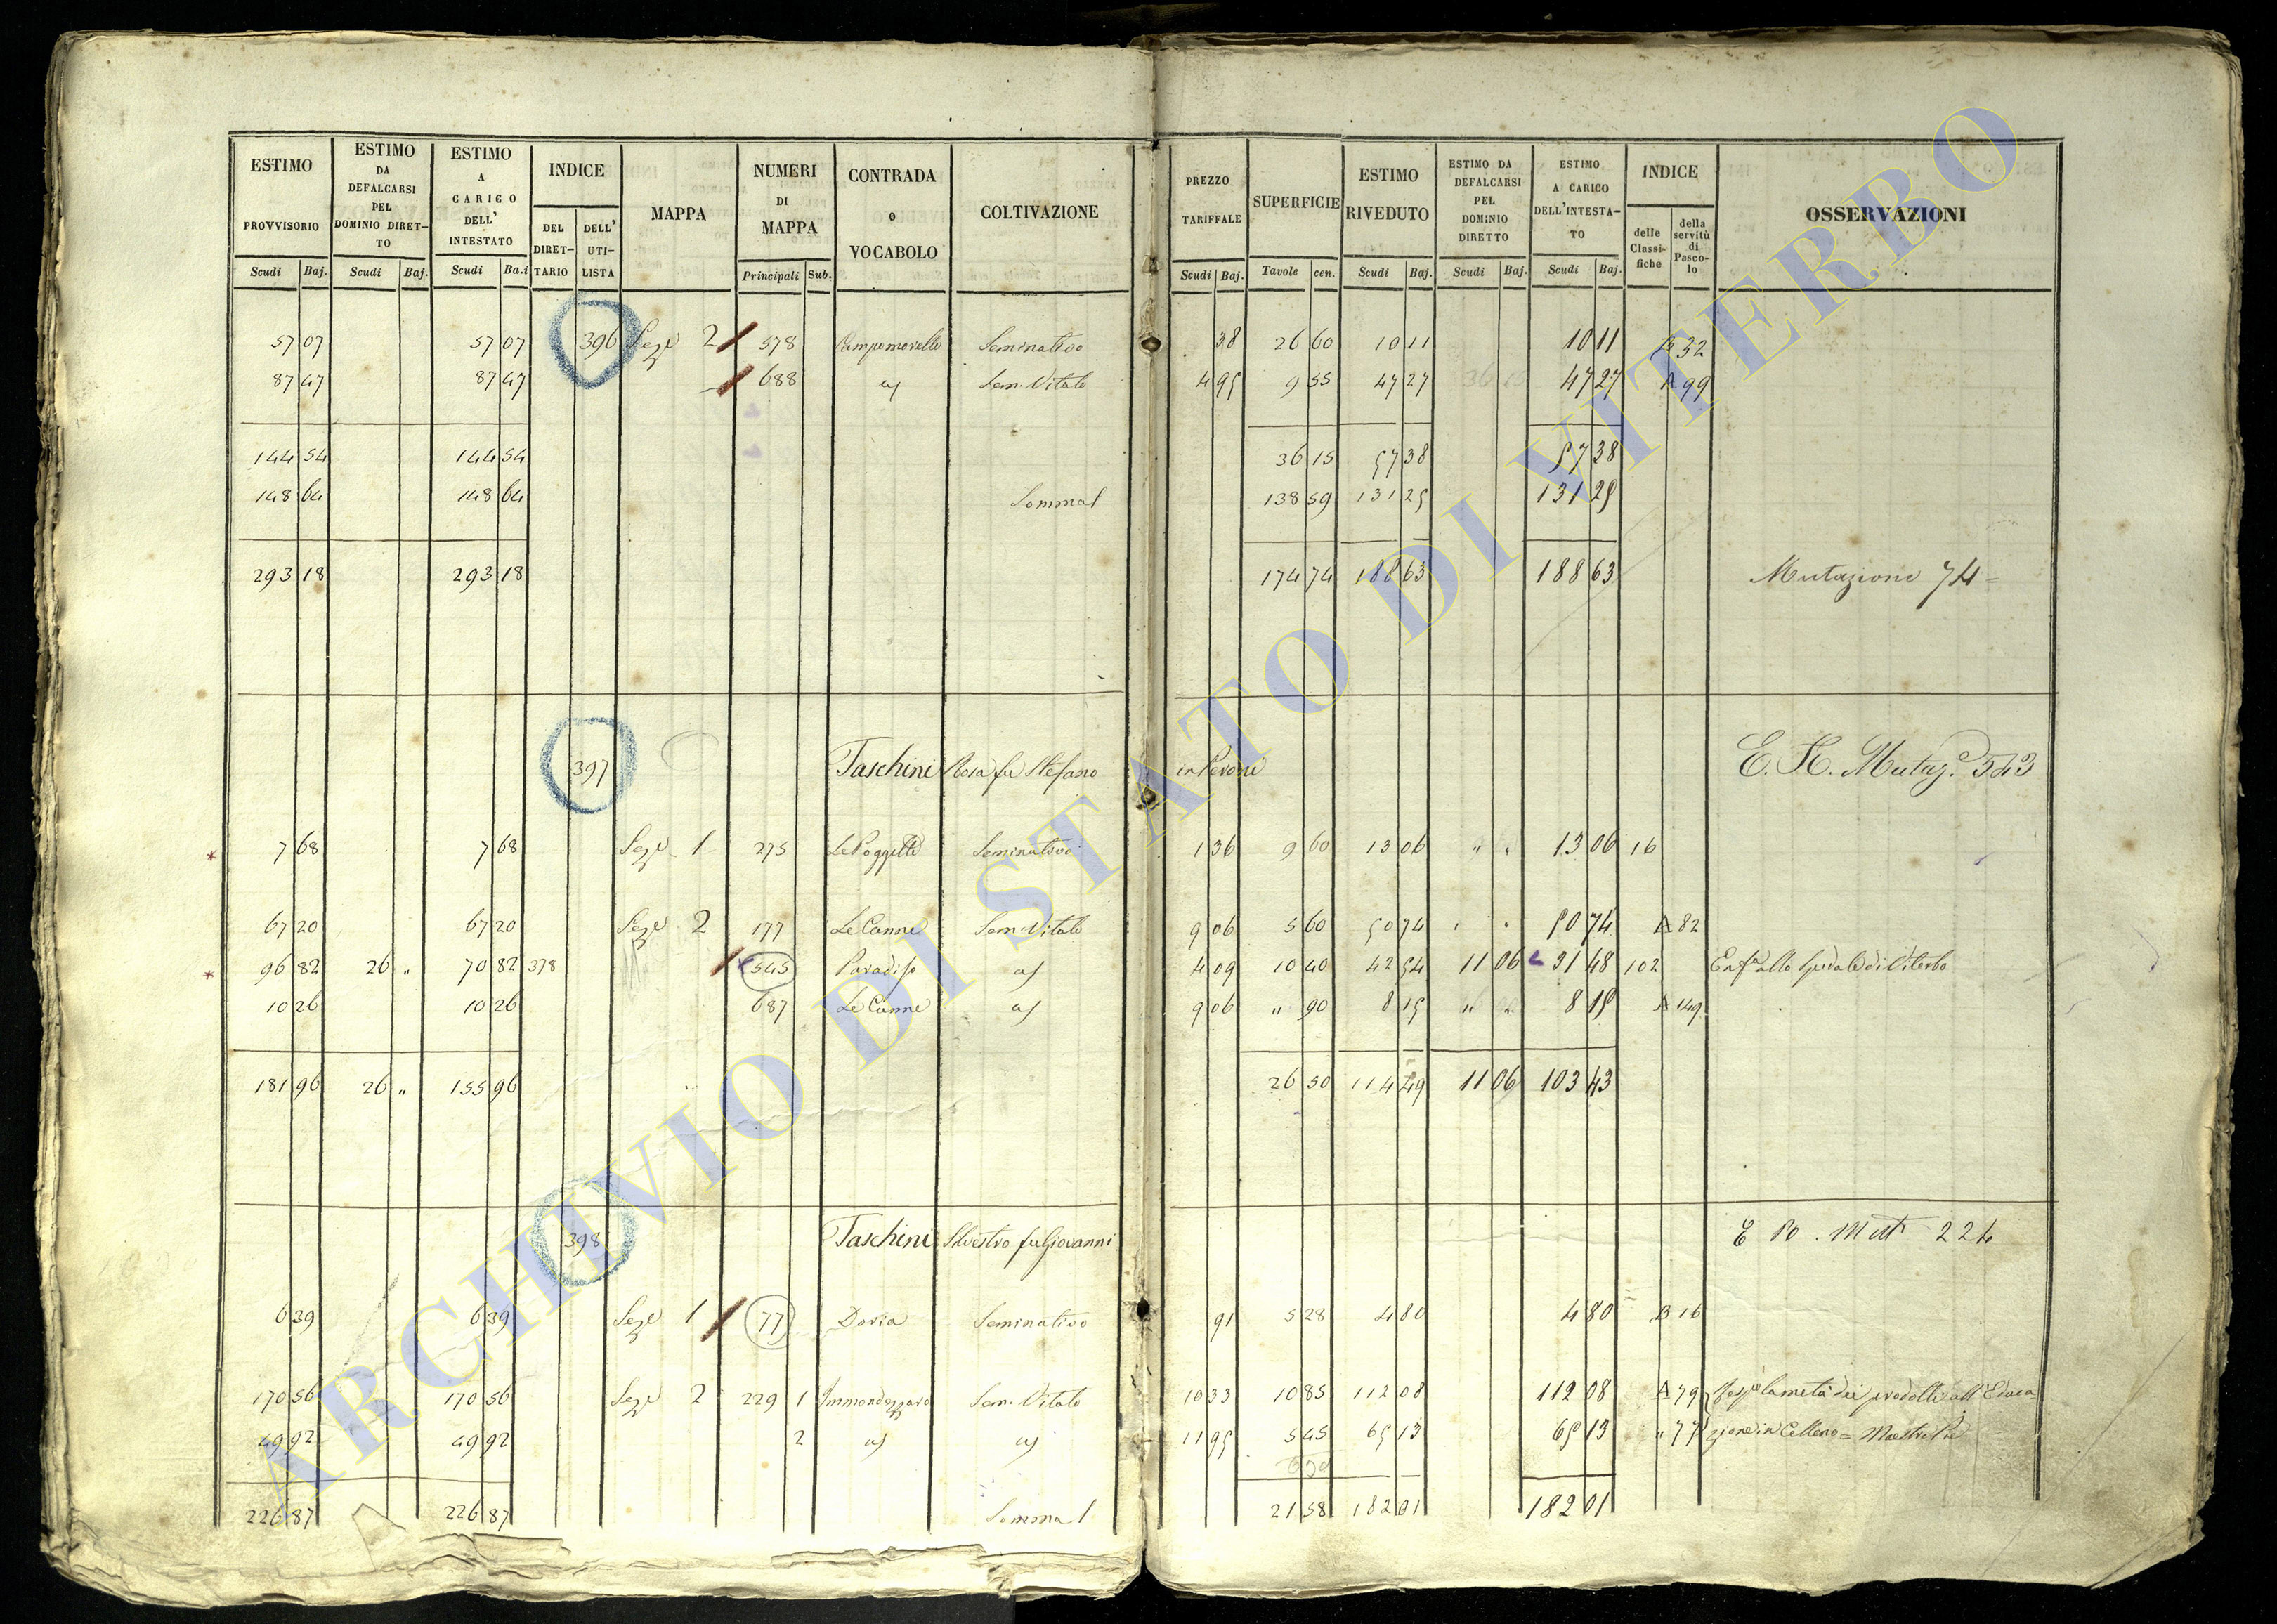 ESTIMO PROVVISORIO Scudi Baj. ESTIMO DA DEFALCARSI PEL DOMINIO DIRET-TO Scudi Baj. ESTIMO A CARICO DELL' INTESTATO Scudi Ba.i INDICE DEL DIRET-TARIO DELL' UTI-LISTA MAPPA NUMERI DI MAPPA Principali Sub. CONTRADA o VOCABOLO COLTIVAZIONE PREZZO TARIFFALE Scudi Baj. SUPERFICIE Tavole cen. ESTIMO RIVEDUTO Scudi Baj. ESTIMO DA DEFALCARSI PEL DOMINIO DIRETTO Scudi Baj. ESTIMO A CARICO DELL'INTESTA-TO Scudi Baj. INDICE delle Classi-fiche della servitù di Pasco-lo OSSERVAZIONI
57 07 57 07 396 Sez.e 2 578 Campomorello Seminativo 38 26 60 10 11 10 11 32
87 47 87 47 688 Sem. Vitato 4 95 9 55 47 27 47 27 A 99
144 54 144 54 36 15 57 38 57 38
148 64 148 64 Somma 138 59 131 25 131 25
293 18 293 18 174 74 188 63 188 63 Mutazione 74
397 Taschini Rosa fu Stefano in Peroni E. H. Mutaz.e 343
7 68 7 68 Sez.e 1 275 Le Poggette Seminativo 1 36 9 60 13 06 " " 13 06 16
67 20 67 20 Sez.e 2 177 Le Canne Sem. Vitato 9 06 5 60 50 74 50 74 A 82
96 82 26 " 70 82 378 545 Paradiso 4 09 10 40 42 54 11 06 31 48 102 Enf.a allo Spedale di Viterbo
10 26 10 26 687 Le Canne 9 06 " 90 8 15 " " 8 15 A 149
181 96 26 " 155 96 26 50 114 49 11 06 103 43
398 Taschini Silvestro fu Giovanni E Mut 224
6 39 6 39 Sez.e 1 77 Doria Seminativo 91 5 28 4 80 4 80 B 16
170 56 170 56 Sez.e 2 229 1 Immondezzaro Sem. Vitato 10 33 10 85 112 08 112 08 A 79 la metà dei prodotti all'Educa
49 92 49 92 2 11 95 5 45 65 13 65 13 " 77 zione in Celleno = Maestre Pie
226 87 226 87 Somma 21 58 182 01 182 01
ARCHIVIO DI STATO DI VITERBO